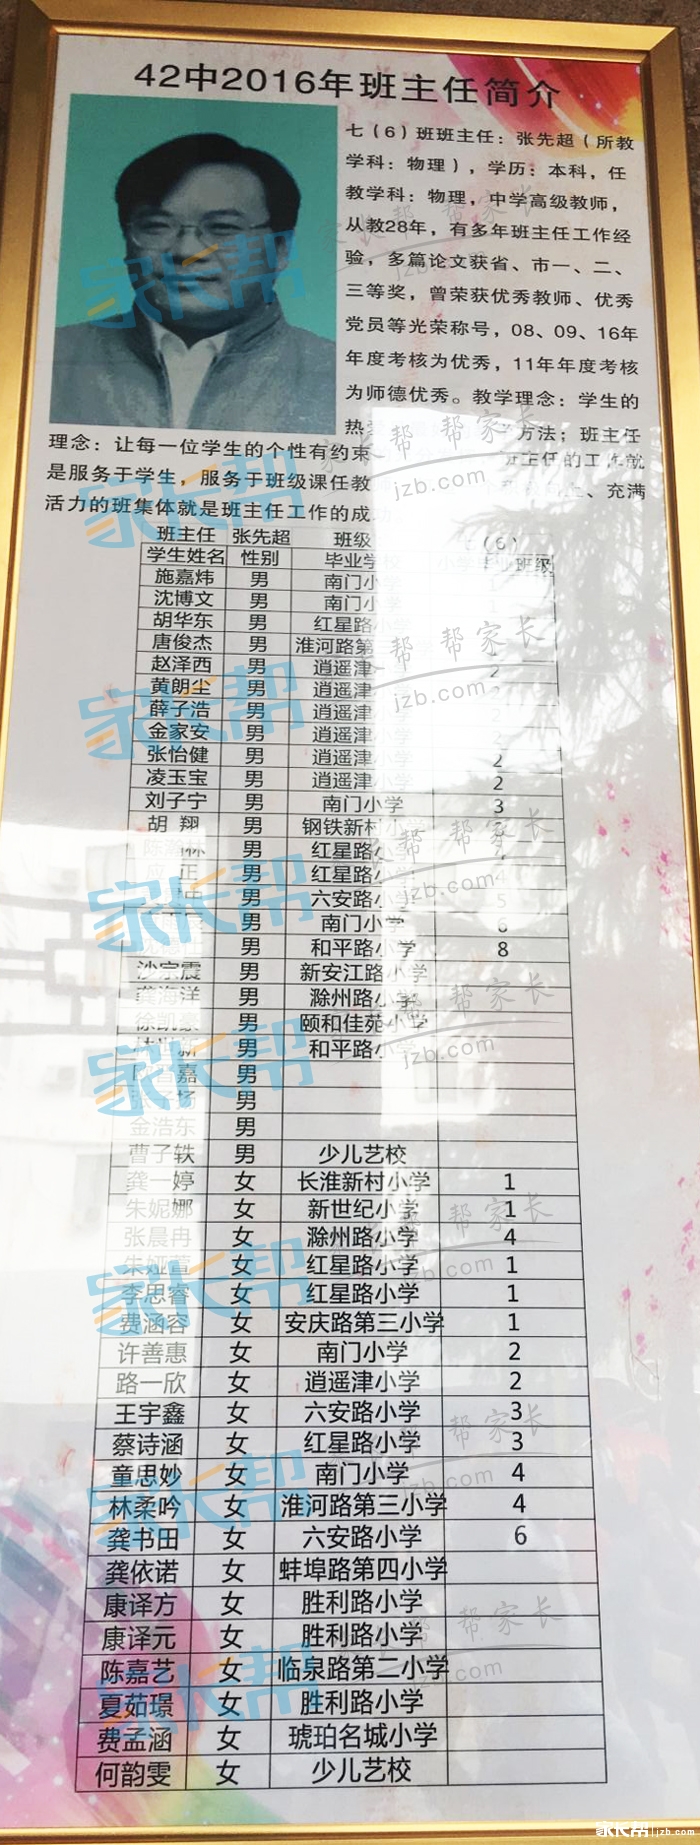 42中2016年班主任简介
七（6）班班主任：张先超（所教
学科：物理），学历：本科，任
教学科：物理，中学高级教师，
从教28年，有多年班主任工作经
验，多篇论文获省、市一、二、
三等奖，曾荣获优秀教师、优秀
党员等光荣称号，08、09、16年
年度考核为优秀，11年年度考核
为师德优秀。教学理念：学生的
热 方法；班主任
理念：让每一位学生的个性有约束 班主任的工作就
是服务于学生，服务于班级课任教 、充满
活力的班集体就是班主任工作的成功
班主任 张先超 班级 （6）
学生姓名 性别 毕业学校 小学毕业班级
施嘉炜 男 南门小学 1
沈博文 男 南门小学 1
胡华东 男 红星路小学
唐俊杰 男 淮河路第
赵泽西 男 逍遥津 2
黄朗尘 男 逍遥津 2
薛子浩 男 逍遥津小学 2
金家安 男 逍遥津小学 2
张怡健 男 逍遥津小学 2
凌玉宝 男 逍遥津小学 2
刘子宁 男 南门小学 3
胡翔 男 钢铁新村小学
陈 林 男 红星路小学 4
应 正 男 红星路小学 4
男 六安路小学 5
男 南门小学 6
男 和平路小学 8
沙宗震 男 新安江路小学
龚海洋 男 滁州路小学
徐凯豪 男 颐和佳苑小学
新 男 和平路小学
嘉 男
扬 男
金浩东 男
曹子轶 男 少儿艺校
龚一婷 女 长淮新村小学 1
朱妮娜 女 新世纪小学 1
张晨冉 女 滁州路小学 4
朱娅萱 女 红星路小学 1
李思睿 女 红星路小学 1
费涵容 女 安庆路第三小学 1
许善惠 女 南门小学 2
路一欣 女 逍遥津小学 2
王宇鑫 女 六安路小学 3
蔡诗涵 女 红星路小学 3
童思妙 女 南门小学 4
林柔吟 女 淮河路第三小学 4
龚书田 女 六安路小学 6
龚依诺 女 蚌埠路第四小学
康译方 女 胜利路小学
康译元 女 胜利路小学
陈嘉艺 女 临泉路第二小学
夏茹璟 女 胜利路小学
费孟涵 女 琥珀名城小学
何韵雯 女 少儿艺校
家长帮 jzb.com